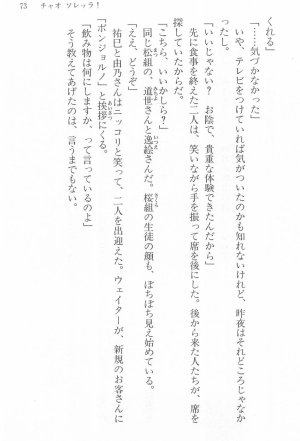 73 チャオ ソレッラ！
くれる」
「……気づかなかった」
いや、テレビをつけていれば気がついたのかも知れないけれど、昨夜はそれどころじゃなか
ったし。
「いいじゃない？ お陰で、貴重な体験できたんだから」
先に食事を終えた二人は、笑いながら手を振って席を後にした。後から来た人たちが、席を
探していたからだ。
「こちら、いいかしら？」
「ええ、どうぞ」
同じ松組の、道世さんと逸絵さんだ。桜組の生徒の顔も、ぽちぽち見え始めている。
祐巳と由乃さんはニッコリと笑って、二人を出迎えた。ウェイターが、新規のお客さんに
「ボンジョルノ」と挨拶にくる。
「飲み物は何にしますか、って言っているのよ」
そう教えてあげたのは、言うまでもない。